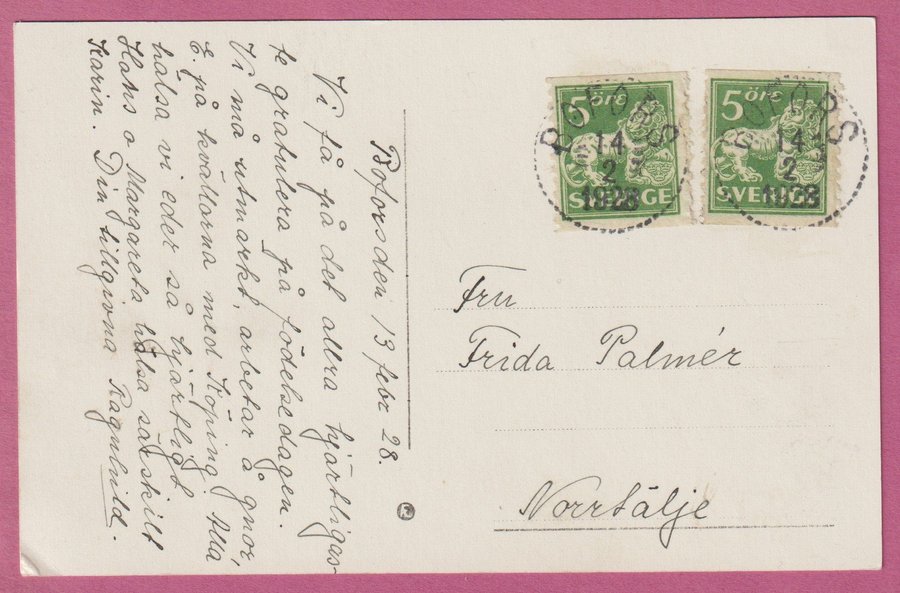 Bofors den 13 febr 28.
Vi få på det allra hjärtligas-
te gratulera på födelsedagen.
Vi må utmärkt, arbetar å gnor,
på kvällarna med Köping. Alla
hälsa vi eder så hjärtligt
Hans o Margareta hälsa särskilt
Karin. Din tillgivna Ragnhild.
5 ÖRE
SVERIGE
5 ÖRE
SVERIGE
BOFORS
14
2
1928
BOFORS
14
2
1928
Fru
Frida Palmér
Norrtälje